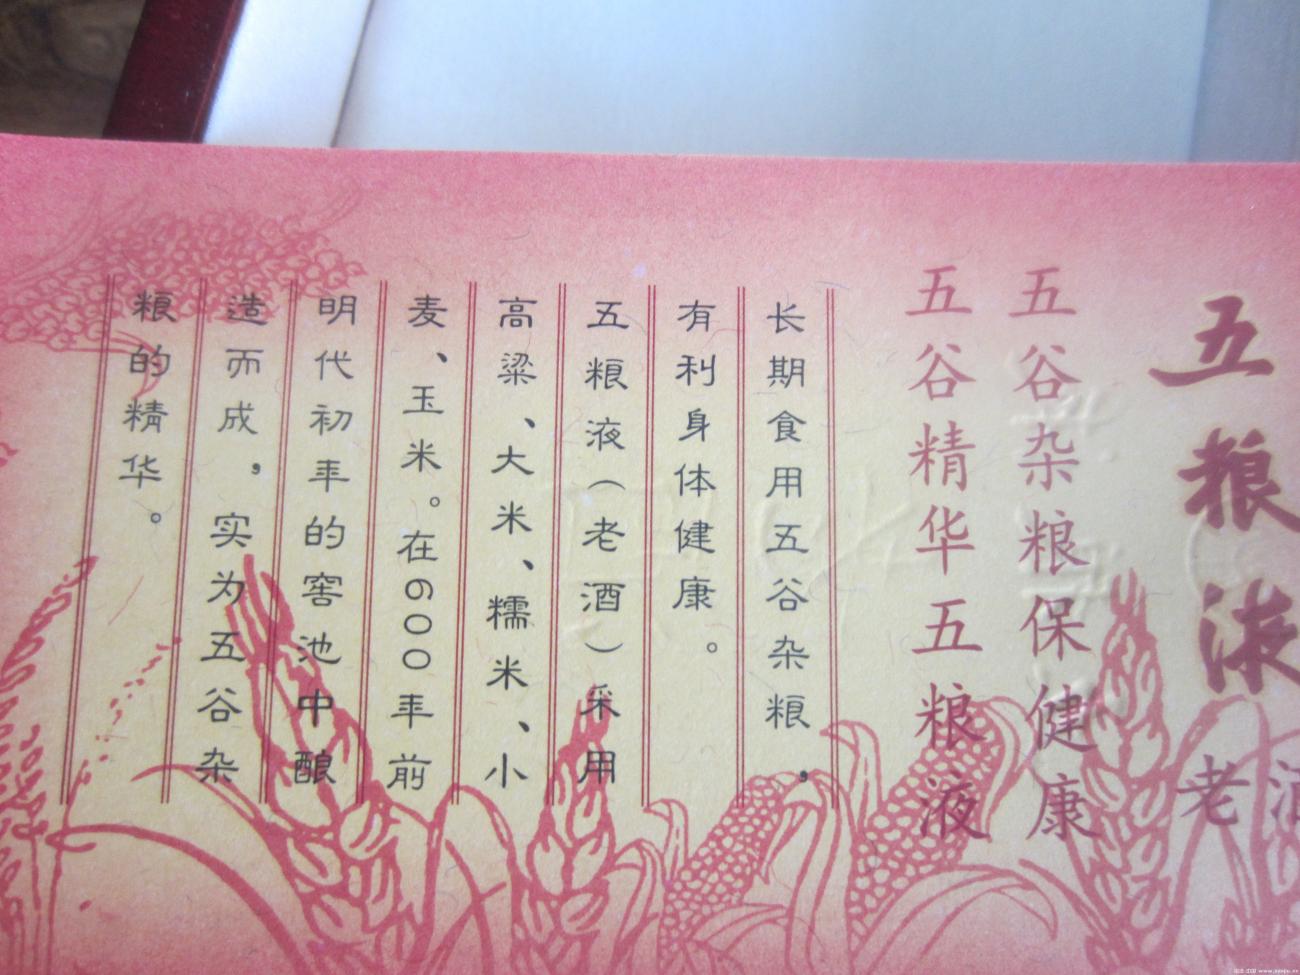 五粮液
老酒
五谷杂粮保健康
五谷精华五粮液
长期食用五谷杂粮，
有利身体健康。
五粮液（老酒）采用
高粱、大米、糯米、小
麦、玉米。在600年前
明代初年的窖池中酿
造而成，实为五谷杂
粮的精华。